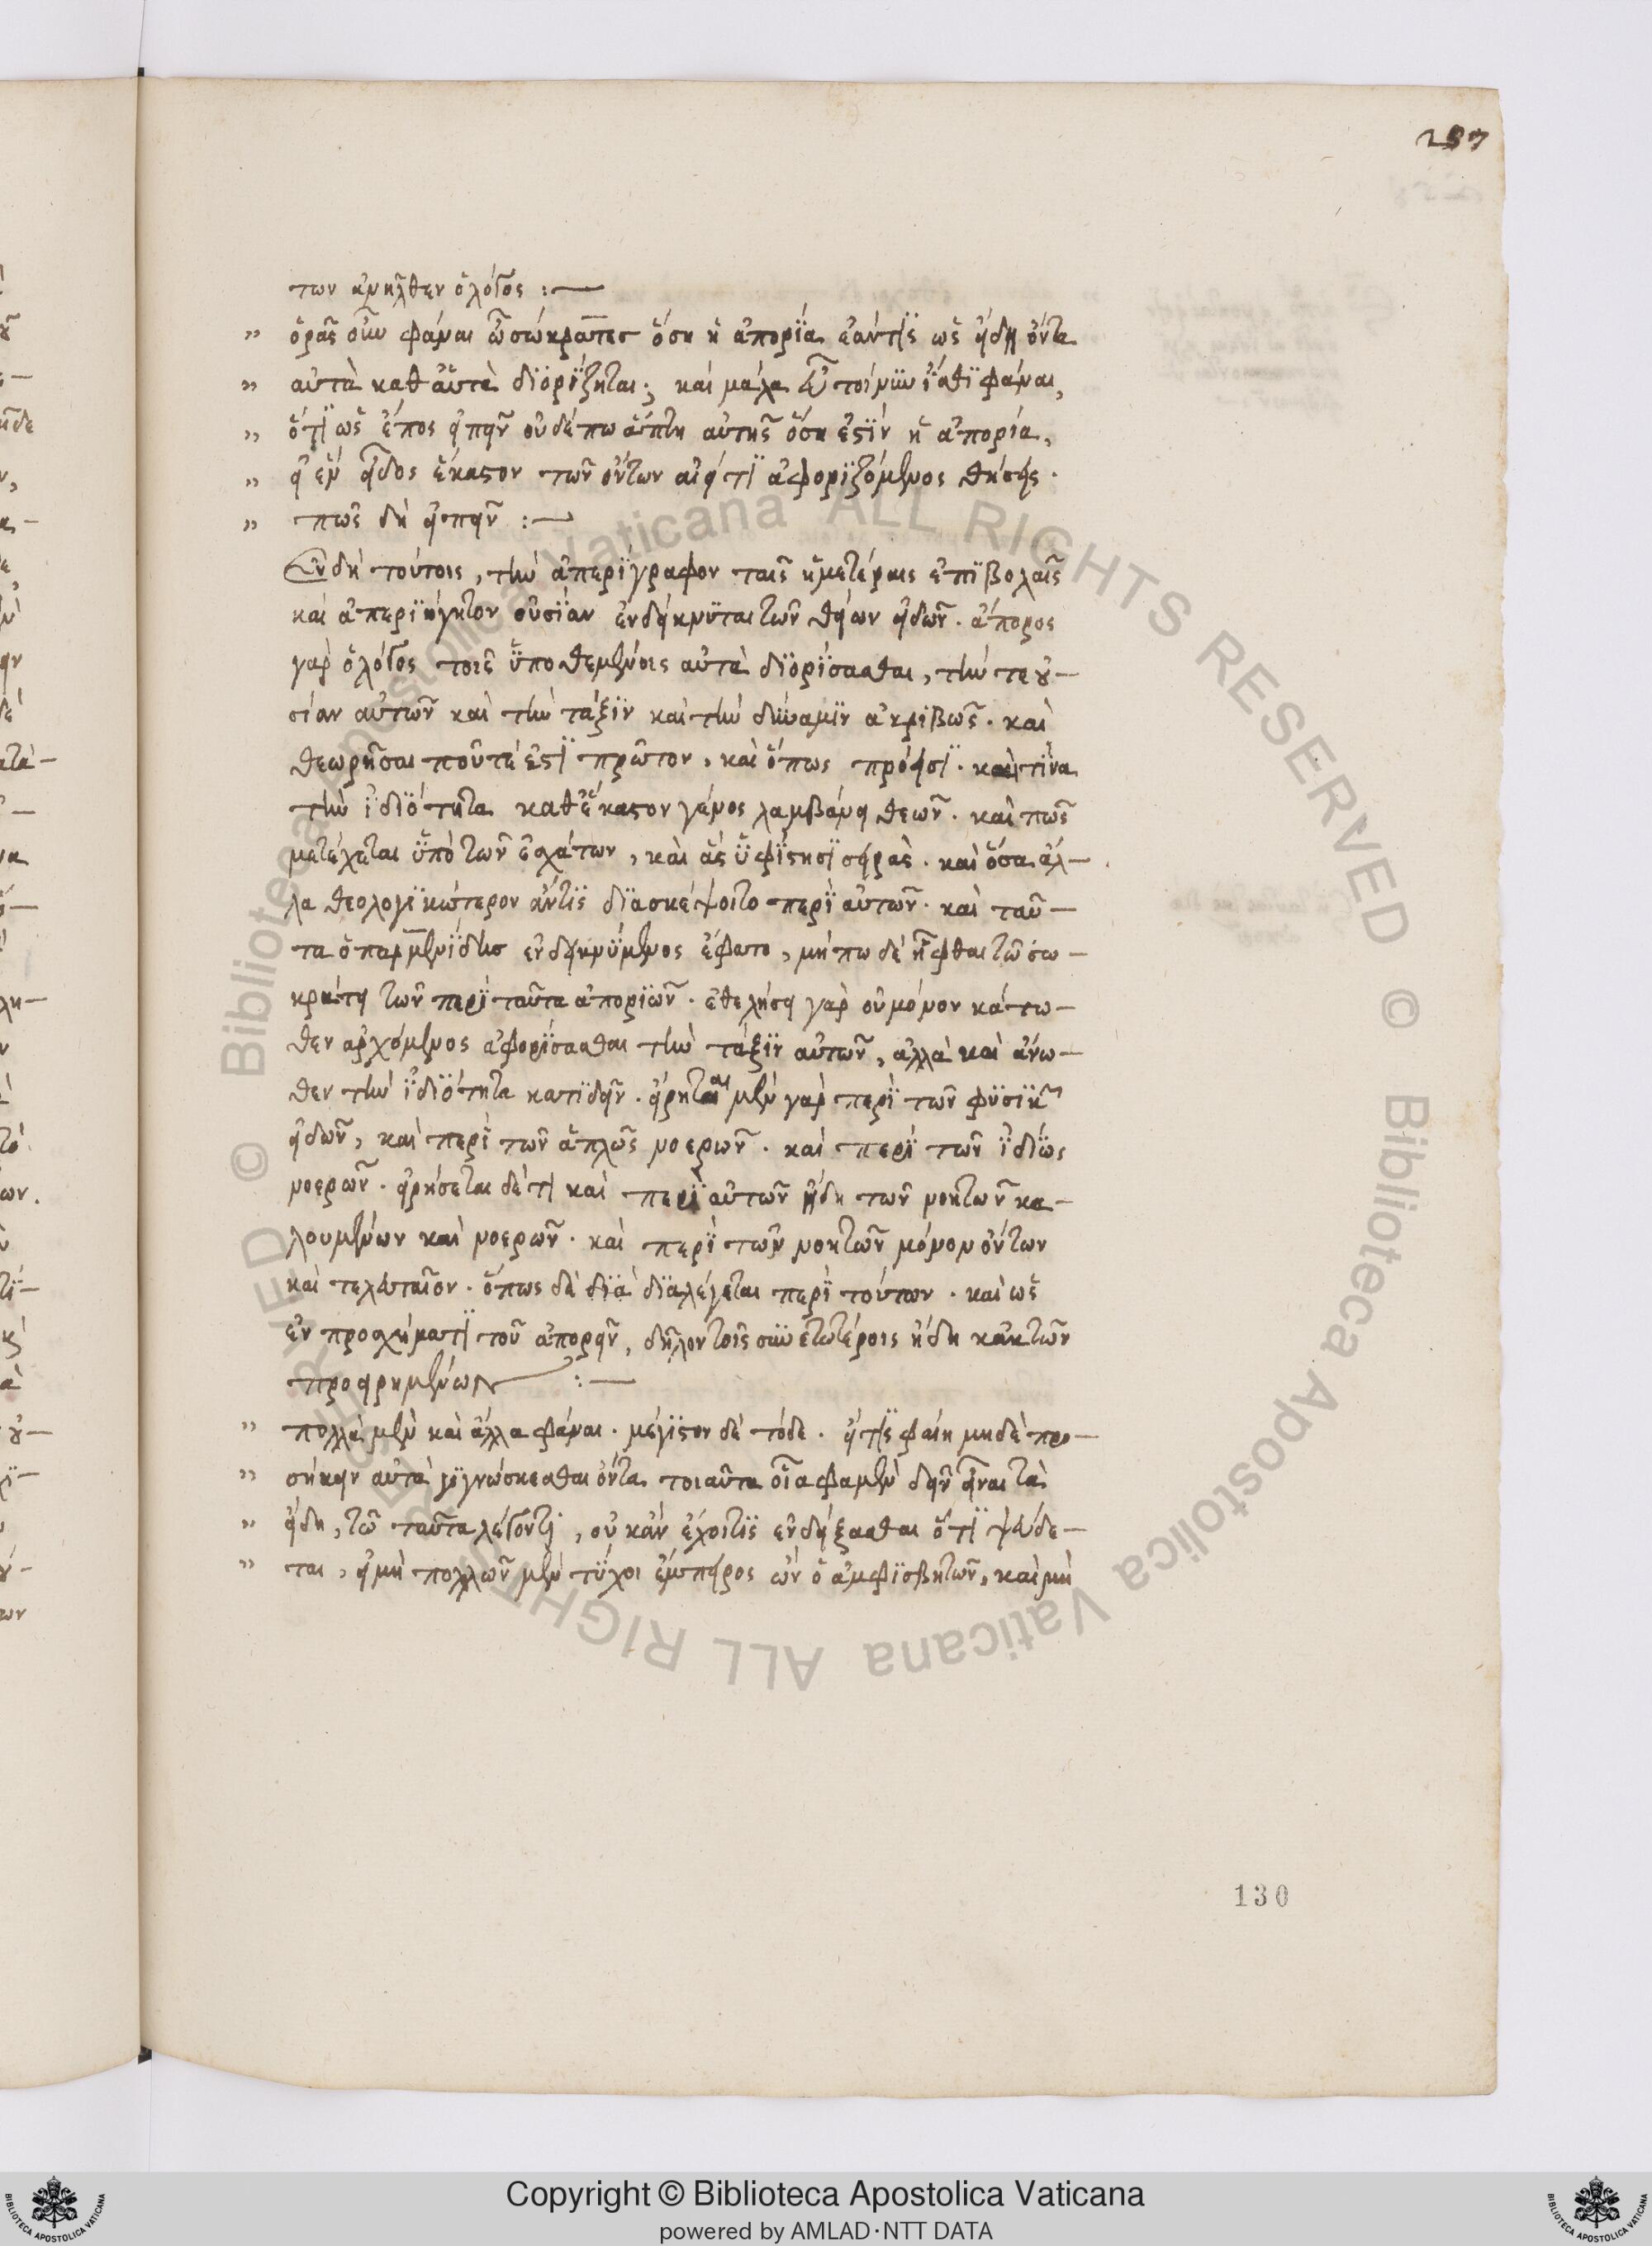 237
των ἀνῆλθεν ὁ λόγος :—
" ὁρᾷς οὖν φάναι ὦ σώκρατες ὅση ἡ ἀπορία ἐάν τις ὡς εἴδη ὄντα
" αὐτὰ καθ αὑτὰ διορίζηται; καὶ μάλα εὖ τοίνυν ἴσθι φάναι,
" ὅτι ὡς ἔπος εἰπεῖν οὐδέπω ἅπτη αὐτῆς ὅση ἐστὶν ἡ ἀπορία,
" εἰ ἓν εἶδος ἕκαστον τῶν ὄντων αἰεί τι ἀφοριζόμενος θήσεις.
" πῶς δὴ εἰπεῖν :—
Ἐν δὴ τούτοις, τὴν ἀπερίγραφον ταῖς ἡμετέραις ἐπιβολαῖς
καὶ ἀπεριήγητον οὐσίαν ἐνδείκνυται τῶν θείων εἰδῶν. ἄπορος
γὰρ ὁ λόγος τοῖς ὑποθεμένοις αὐτὰ διορίσασθαι, τήν τε οὐ—
σίαν αὐτῶν καὶ τὴν τάξιν καὶ τὴν δύναμιν ἀκριβῶς. καὶ
θεωρῆσαι ποῦ τέ ἐστι πρῶτον, καὶ ὅπως πρόεισι. καὶ τίνα
τὴν ἰδιότητα καθ ἕκαστον γένος λαμβάνει θεῶν. καὶ πῶς
μετέχεται ὑπὸ τῶν ἐσχάτων, καὶ ἃς ὑφίστησι σειράς. καὶ ὅσα ἄλ—
λα θεολογικώτερον ἄν τις διασκέψοιτο περὶ αὐτῶν. καὶ ταῦ—
τα ὁ παρμενίδης ἐνδεικνύμενος ἔφατο, μήπω δὲ ἧφθαι τῶ σω—
κράτη τῶν περὶ ταῦτα ἀποριῶν. ἐθελήσει γὰρ οὐ μόνον κάτω—
θεν ἀρχόμενος ἀφορίσασθαι τὴν τάξιν αὐτῶν, ἀλλὰ καὶ ἄνω—
θεν τὴν ἰδιότητα κατιδεῖν. εἴρηται μὲν γὰρ περὶ τῶν φυσικῶν
εἰδῶν, καὶ περὶ τῶν ἁπλῶς νοερῶν. καὶ περὶ τῶν ἰδίως
νοερῶν. εἰρήσεται δέ τι καὶ περὶ αὐτῶν ἤδη τῶν νοητῶν κα—
λουμένων καὶ νοερῶν. καὶ περὶ τῶν νοητῶν μόνον ὄντων
καὶ τελευταῖον. ὅπως δὲ διὰ διαλέγεται περὶ τούτων. καὶ ὡς
ἐν προσχήματι τοῦ ἀπορεῖν, δῆλον τοῖς συνετωτέροις ἤδη κἀκ τῶν
προειρημένων :—
" πολλὰ μὲν καὶ ἄλλα φάναι. μέγιστον δὲ τόδε. εἴ τις φαίη μηδὲ προ—
" σήκειν αὐτὰ γιγνώσκεσθαι ὄντα τοιαῦτα οἷα φαμὲν δεῖν εἶναι τὰ
" εἴδη, τῶ ταῦτα λέγοντι, οὐκ ἂν ἔχοι τις ἐνδείξασθαι ὅτι ψεύδε—
" ται, εἰ μὴ πολλῶν μὲν τύχοι ἔμπειρος ὢν ὁ ἀμφισβητῶν, καὶ μὴ
130
© Biblioteca Apostolica Vaticana ALL RIGHTS RESERVED © Biblioteca Apostolica Vaticana ALL RIGHTS RESERVED
Copyright © Biblioteca Apostolica Vaticana
powered by AMLAD·NTT DATA